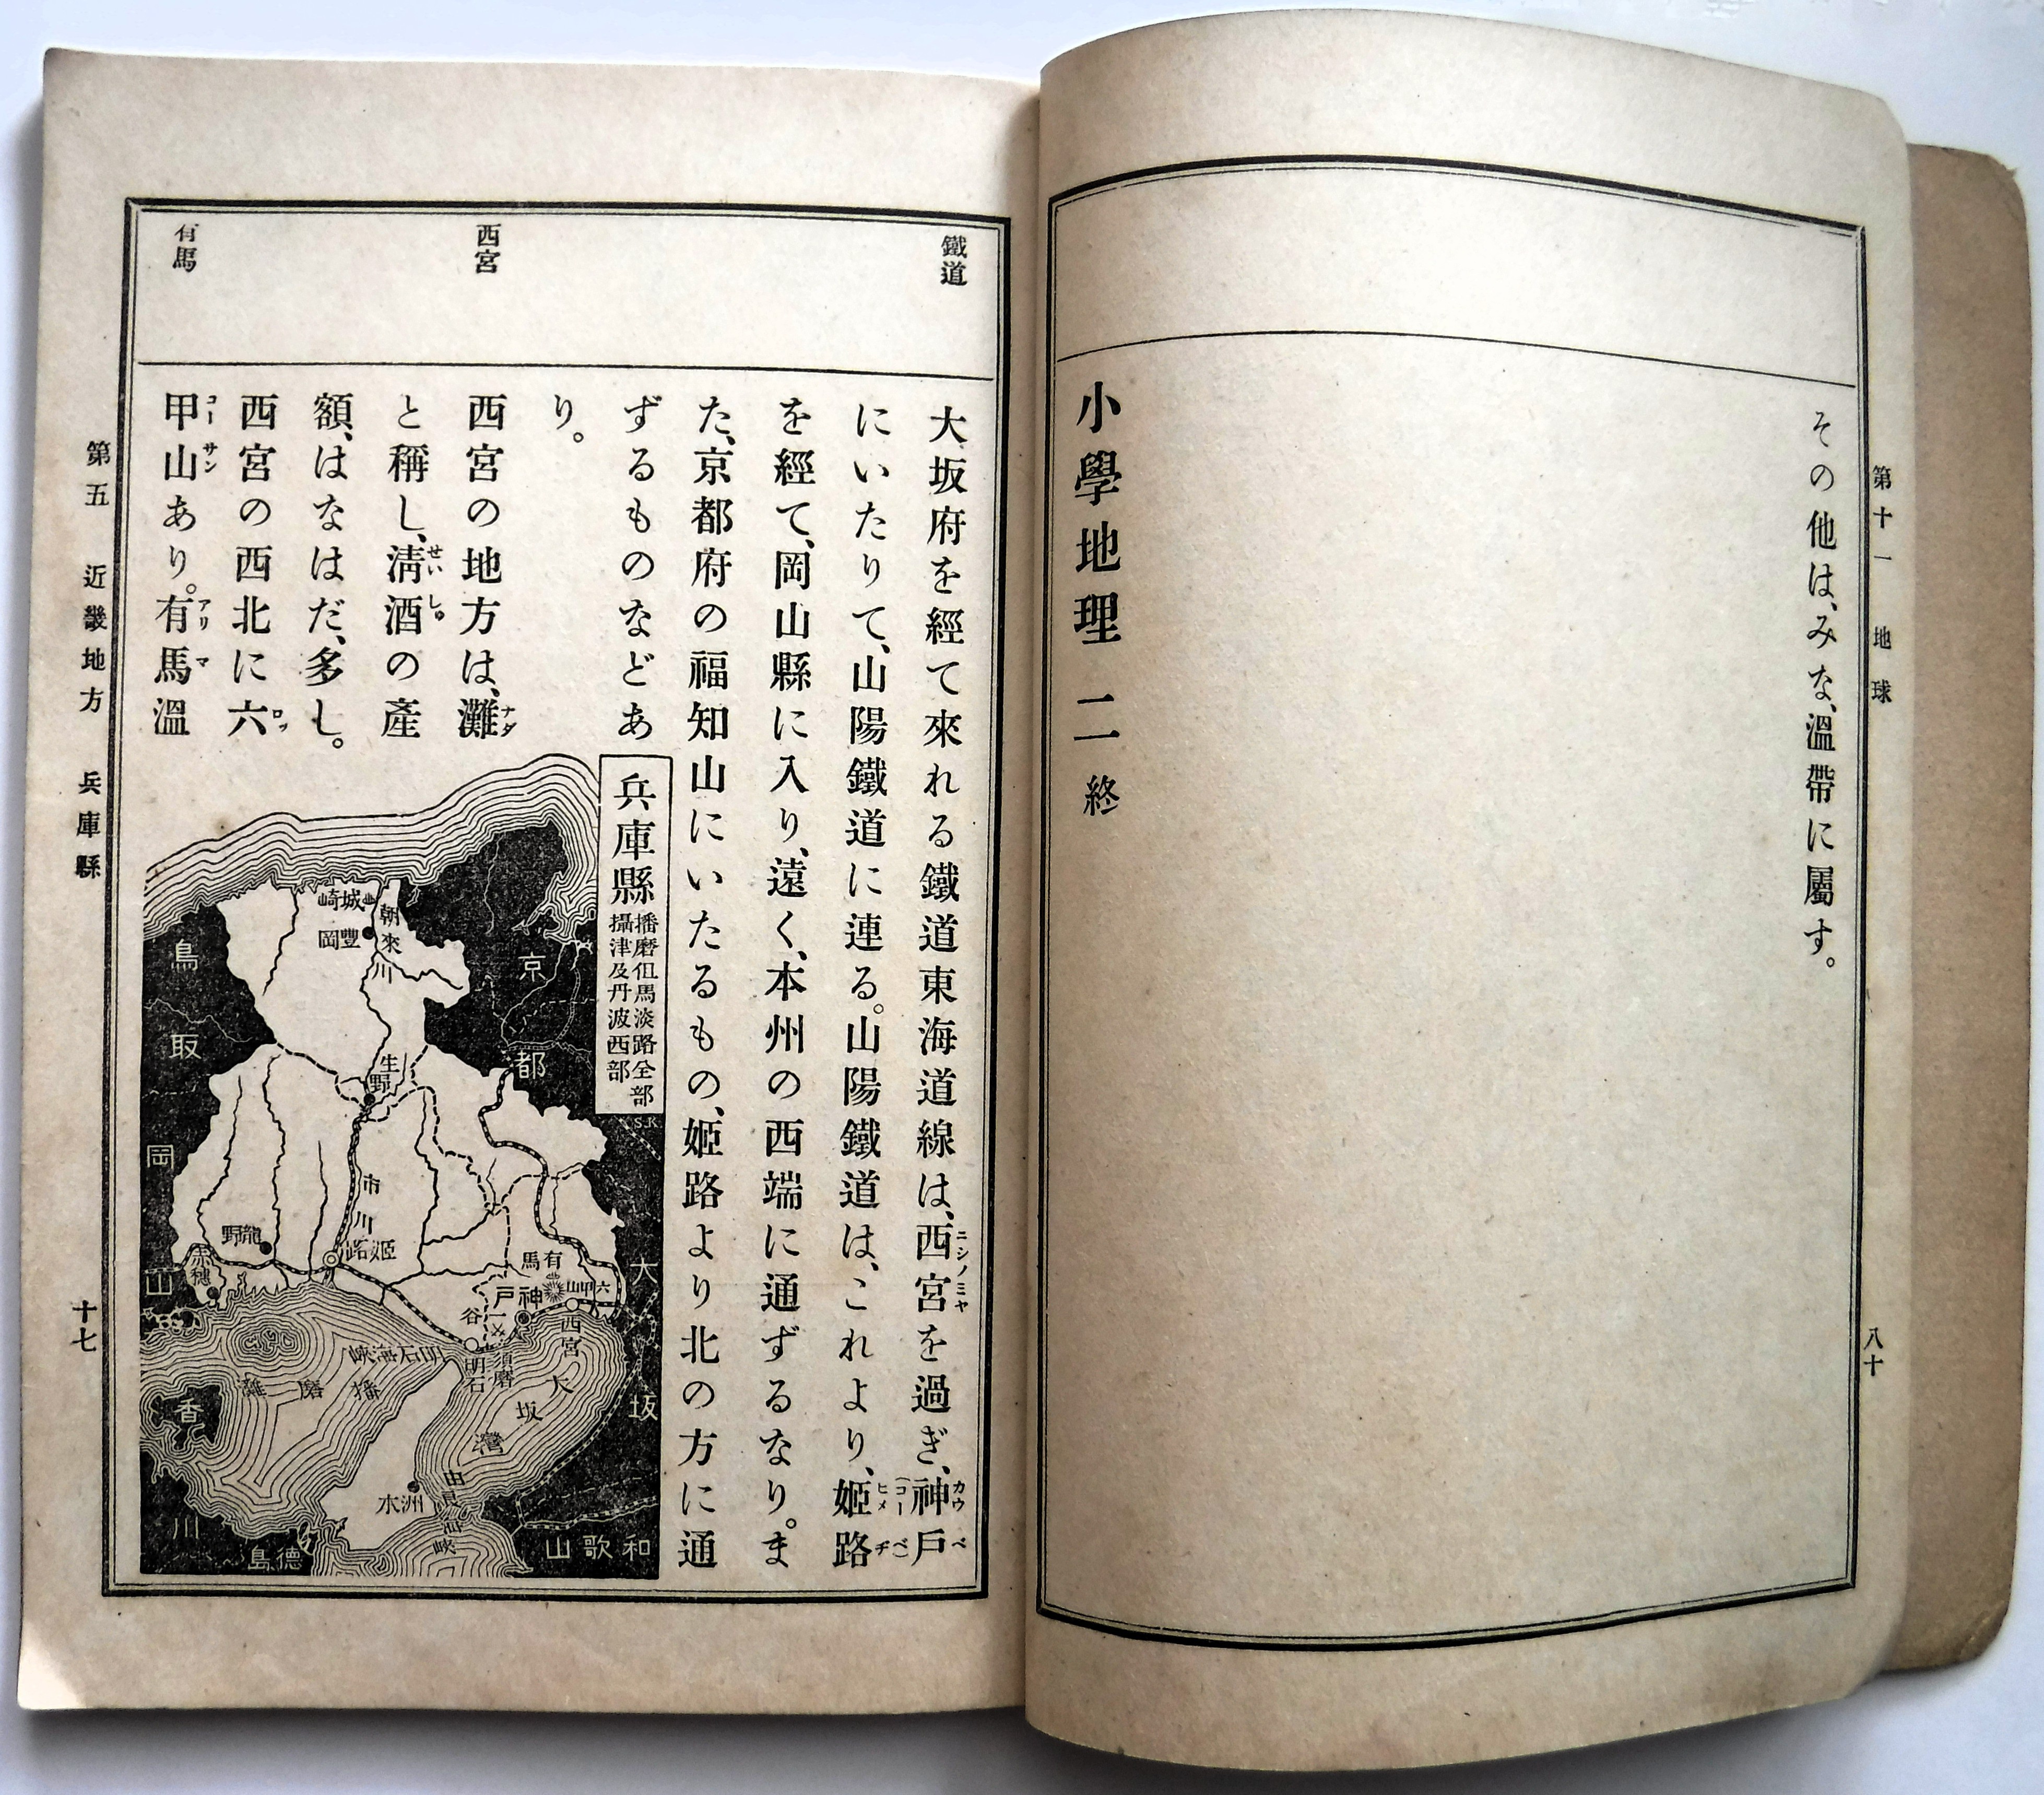 第十一 地球
八十
その他は、みな、溫帶に屬す。
小學地理 二 終
鐵道
西宮
有馬
大坂府を經て來れる鐵道東海道線は、西宮を過ぎ、神戶
ニシノミヤ
カウベ
(コーベ)
にいたりて、山陽鐵道に連る。山陽鐵道は、これより、姬路
ヒメヂ
を經て、岡山縣に入り、遠く、本州の西端に通ずるなり。ま
た、京都府の福知山にいたるもの、姬路より北の方に通
ずるものなどあ
り。
西宮の地方は、灘
ナダ
と稱し、淸酒の產
せいしゅ
額、はなはだ、多し。
西宮の西北に六
ロッ
甲山あり。有馬溫
コーサン
アリマ
兵庫縣
播磨但馬淡路全部
攝津及丹波西部
S.K
城崎
豐岡
朝來川
鳥取
京都
生野
岡山
市川
姬路
龍野
赤穗
有馬
六甲山
神戶
西宮
一ノ谷
須磨
明石
明石海峽
播磨灘
大坂灣
大坂
香川
洲水
由良海峽
德島
和歌山
第五 近畿地方 兵庫縣
十七